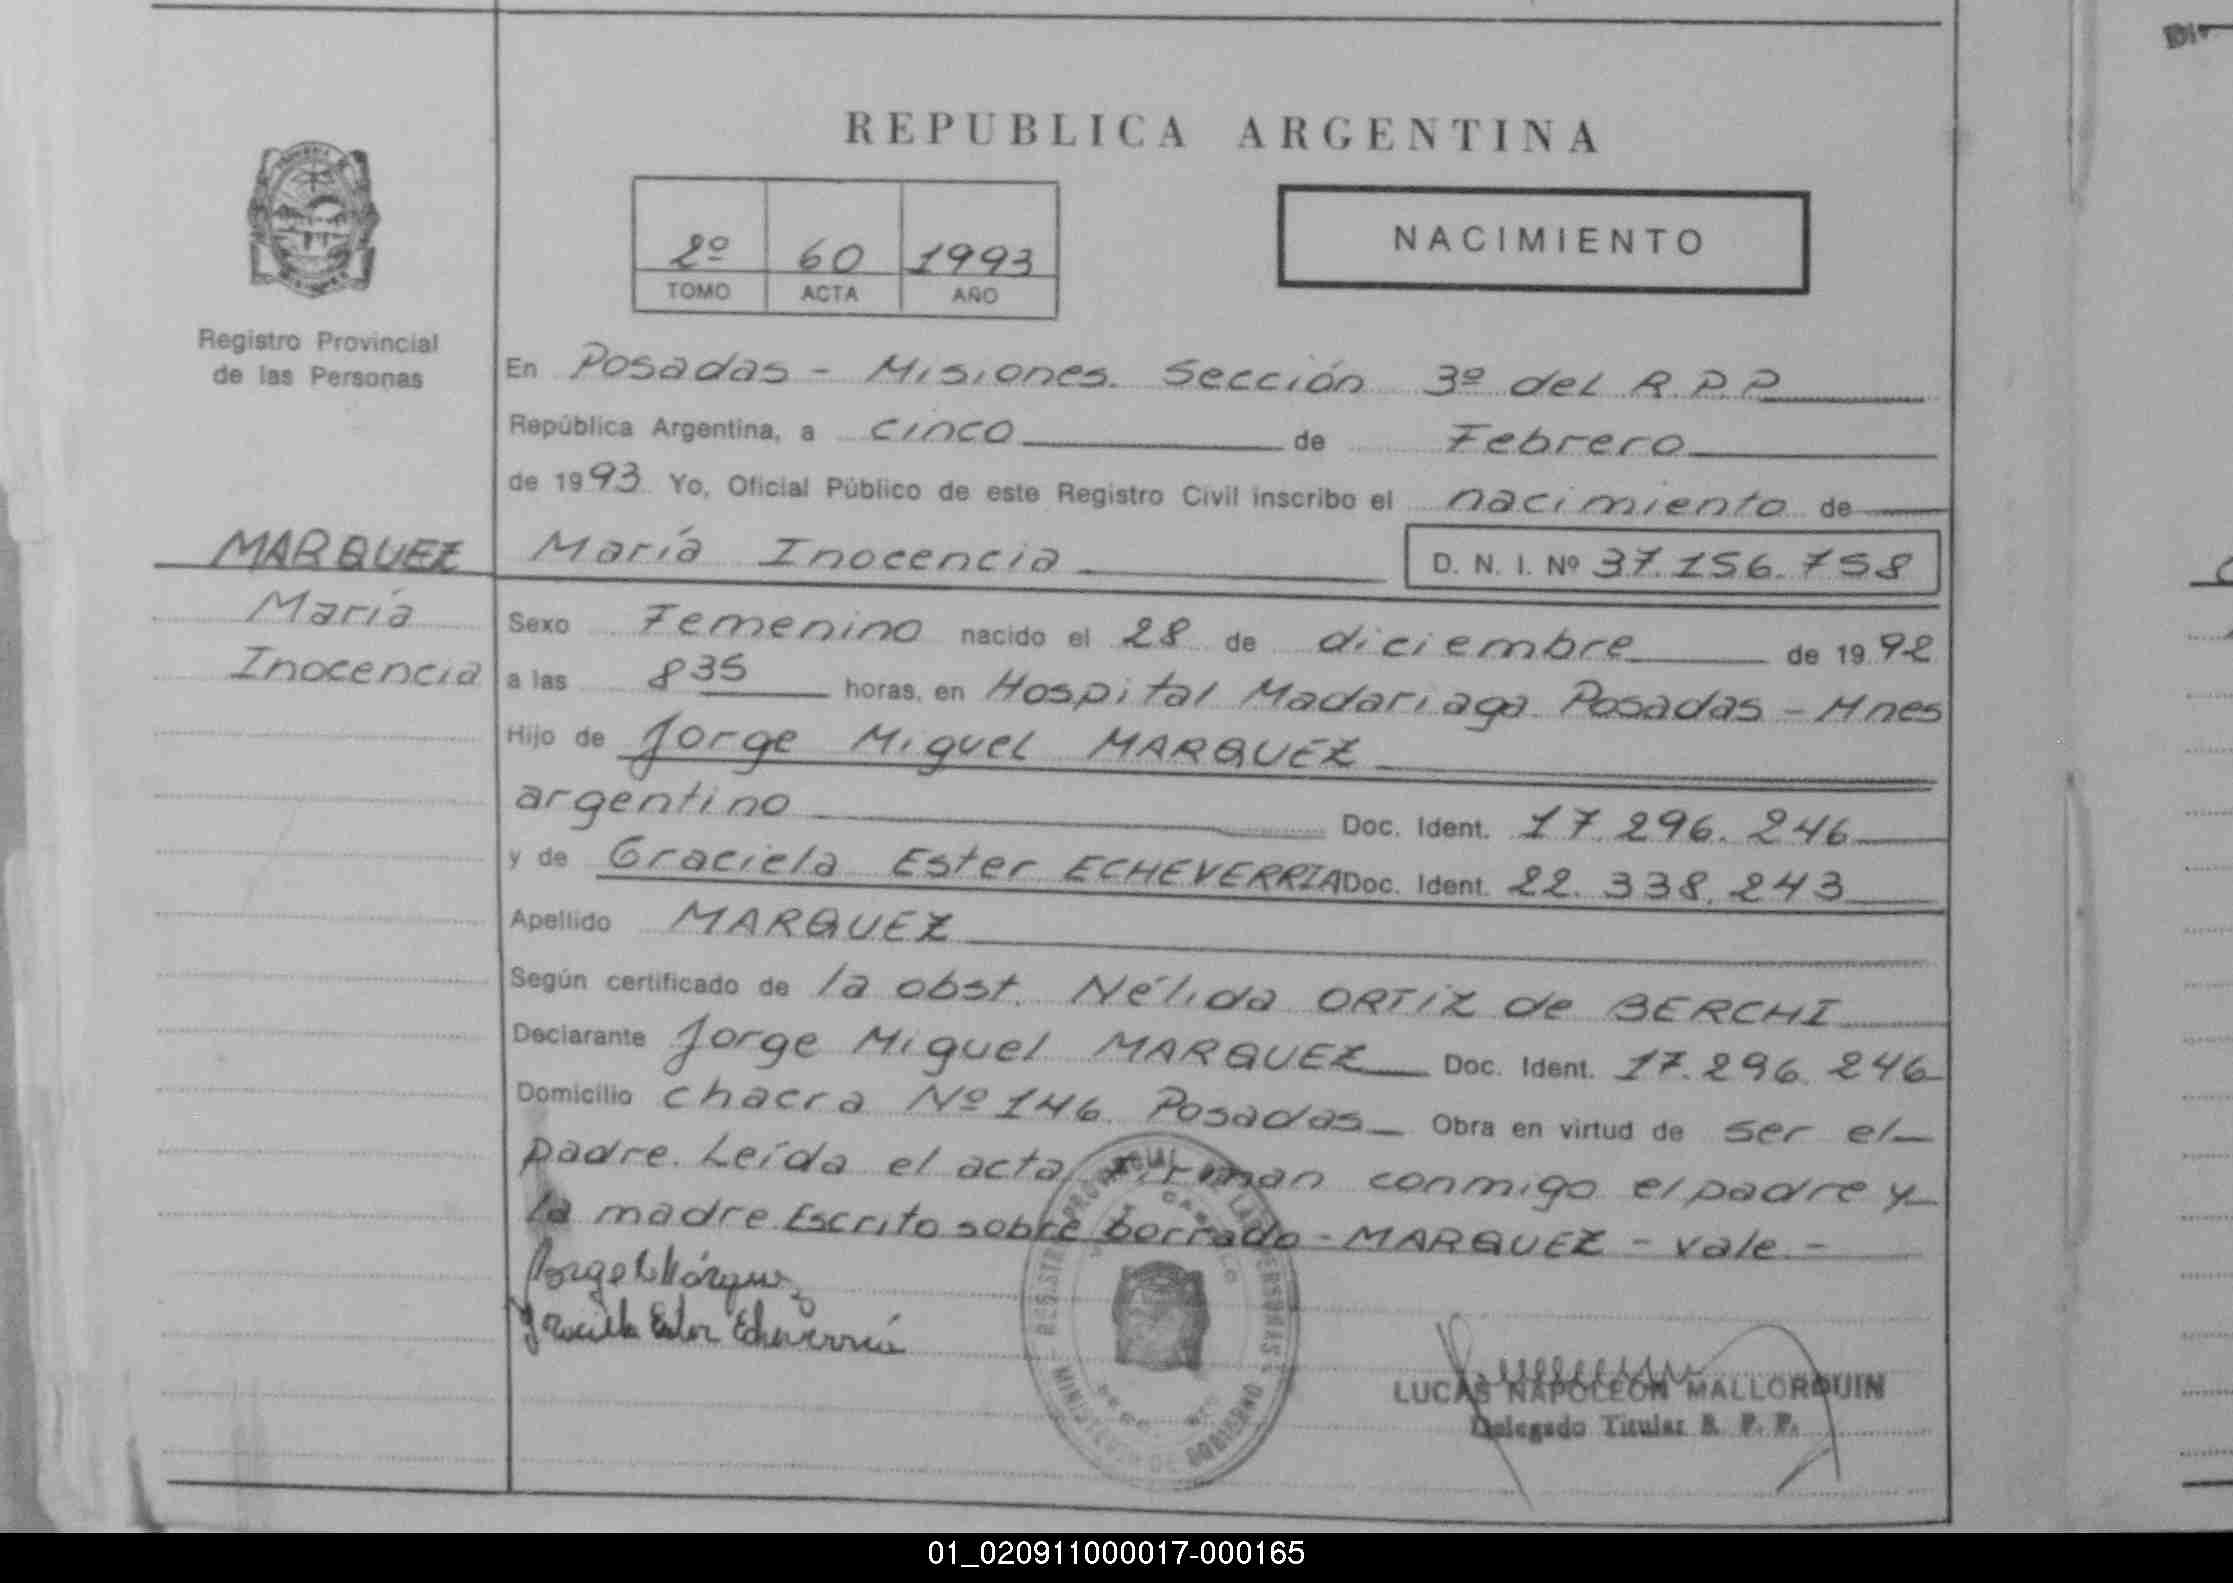 REPUBLICA ARGENTINA
2º 60 1993
TOMO ACTA AÑO
NACIMIENTO
Registro Provincial
de las Personas
En Posadas - Misiones. Sección 3º del R.P.P.
República Argentina, a cinco de Febrero
de 1993 Yo, Oficial Público de este Registro Civil inscribo el nacimiento de
MARQUEZ
María
Inocencia
María Inocencia D. N. I. Nº 37.156.758
Sexo Femenino nacido el 28 de diciembre de 1992
a las 8 35 horas, en Hospital Madariaga Posadas - Mnes
Hijo de Jorge Miguel MARQUEZ
argentino Doc. Ident. 17.296.246
y de Graciela Ester ECHEVERRIA Doc. Ident. 22.338.243
Apellido MARQUEZ
Según certificado de la obst. Nélida ORTIZ de BERCHI
Declarante Jorge Miguel MARQUEZ Doc. Ident. 17.296.246
Domicilio chacra Nº 146 Posadas Obra en virtud de ser el
padre. Leída el acta firman conmigo el padre y
la madre. Escrito sobre borrado - MARQUEZ - vale.-
Graciela Ester Echeverría
REGISTRO PROVINCIAL DE LAS PERSONAS
MINISTERIO DE GOBIERNO
LUCAS NAPOLEON MALLORQUIN
Delegado Titular R. P. P.
01_020911000017-000165